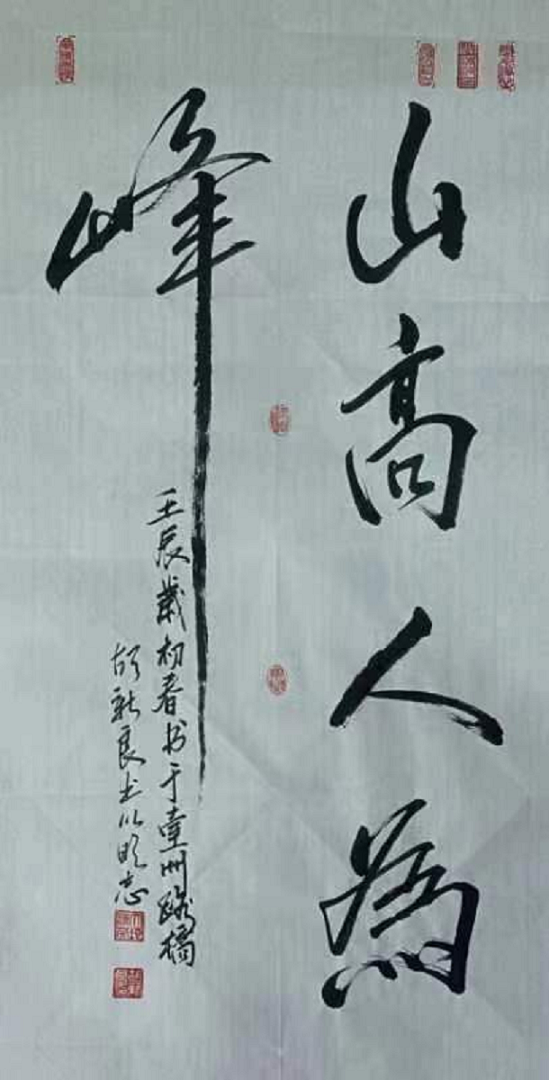 山高人為
峰
壬辰歲初春书于臺州路橋
胡新良书以明志